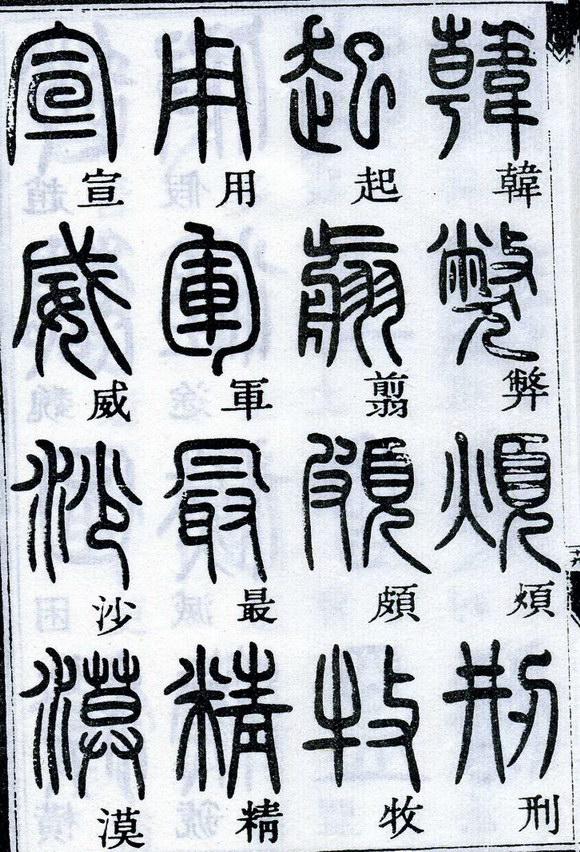 韓弊煩刑
起翦頗牧
用軍最精
宣威沙漠